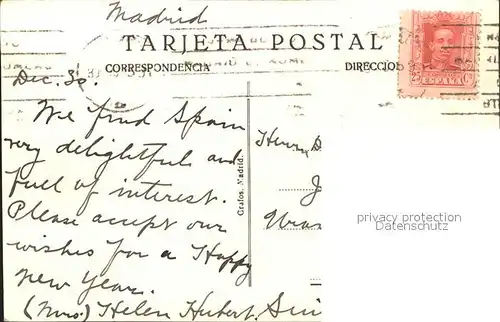 Madrid
TARJETA POSTAL
CORRESPONDENCIA
DIRECCION
Dec. 30.
ESPAÑA
25 Cs
We find Spain
very delightful and
full of interest.
Please accept our
wishes for a Happy
New Year.
(Mrs) Helen Hubert
Grafos. Madrid.
privacy protection
Datenschutz